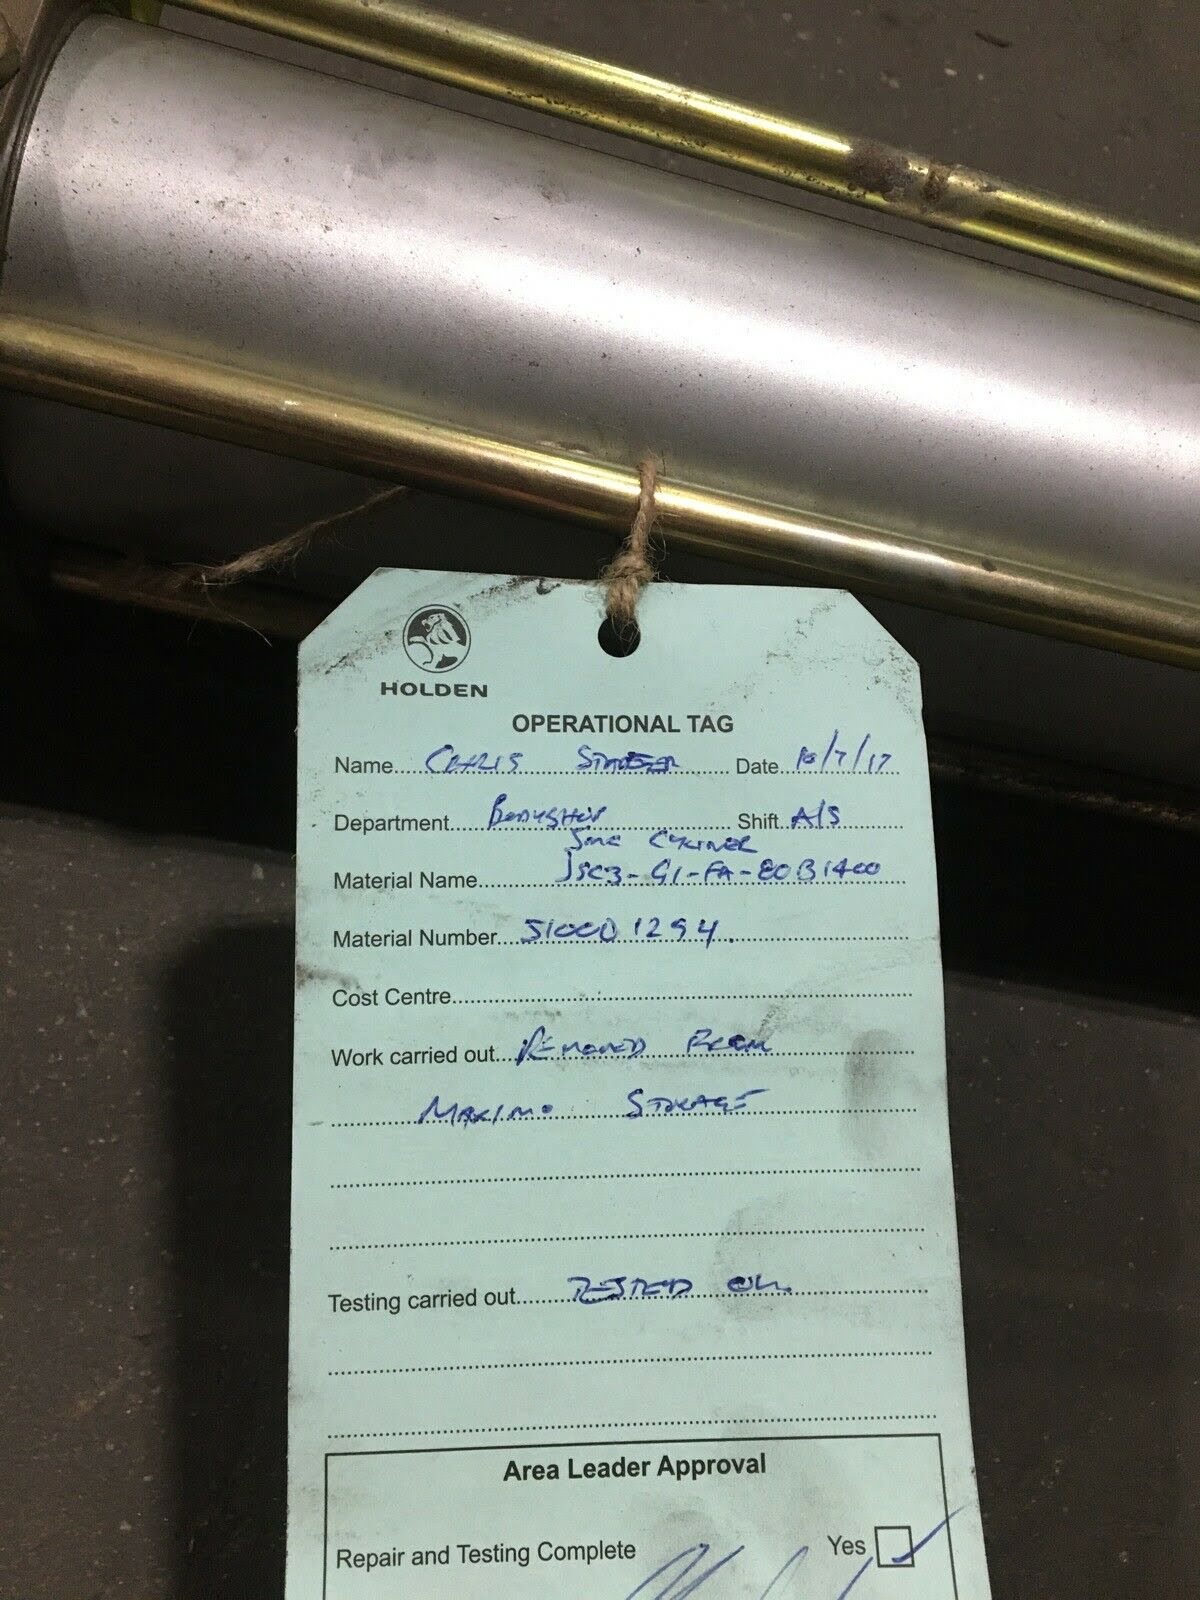 HOLDEN
OPERATIONAL TAG
Name CHRIS Date 10/7/17
Department BODYSHOP Shift A/S
SMC CYLINDER
Material Name JSC3-G1-FA-80B1400
Material Number 51000 1294.
Cost Centre
Work carried out REMOVED FROM
MAXIMO STORAGE
Testing carried out TESTED OK.
Area Leader Approval
Repair and Testing Complete Yes